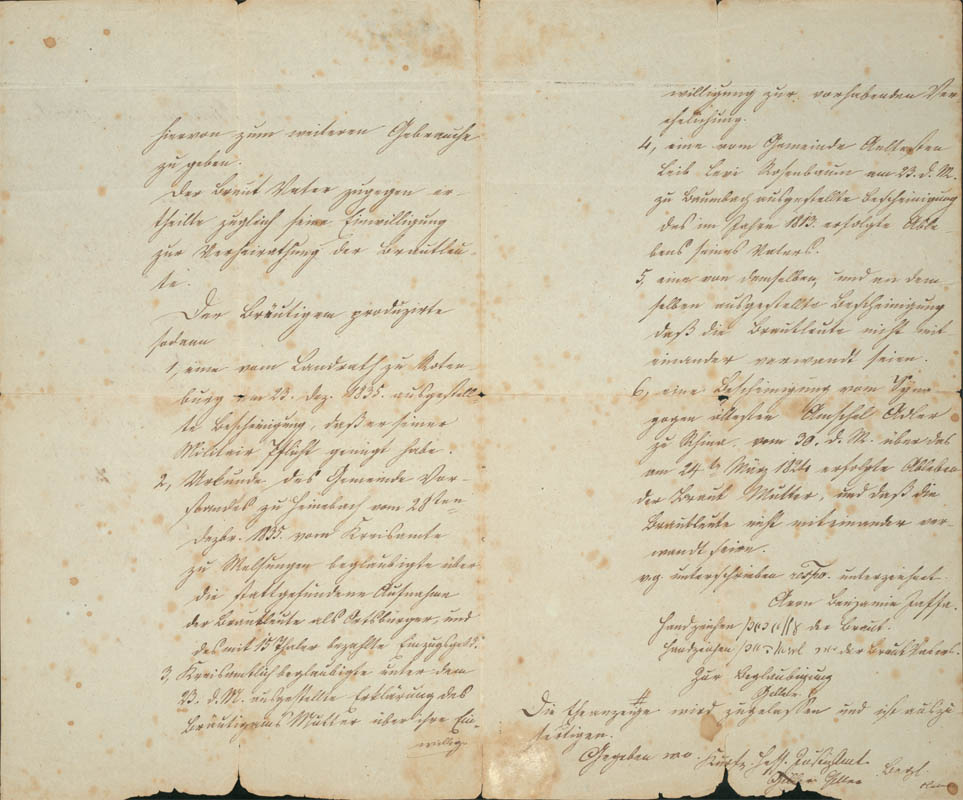 hiervon zum weiteren Gebrauche
zu geben.
Der Braut Vater zugegen er-
theilte zugleich seine Einwilligung
zur Verheirathung der Brautleu-
te.
Der Bräutigam produzirte
sodann
1, eine vom Landrath zu Roten
burg am 23. Dez. 1835. ausgestell-
te Bescheinigung, daß er seiner
Militair Pflicht genügt habe.
2, Urkunde des Gemeinde Vor-
standes zu Heinebach vom 28ten
Dezbr. 1835. vom Kreisamte
zu Melsungen beglaubigt über
die stattgefundene Aufnahme
der Brautleute als Ortsbürger, und
des mit 15 Thaler bezahlte Einzugsgeld.
3, Kreisamtlich beglaubigte unter dem
23. d. M. ausgestellte Erklärung des
Bräutigams Mutter über ihre Ein-
willig-
willigung zur vorhabenden Ver
ehelichung.
4, eine vom Gemeinde Aeltesten
Leib Levi Rosenbaum am 23. d. M.
zu Baumbach ausgestellte Bescheinigung
des im Jahre 1813. erfolgte Able-
bens seines Vaters.
5, eine von demselben, und an dem
selben ausgestellte Bescheinigung
daß die Brautleute nicht mit
einander verwandt seien.
6, eine Bescheinigung vom Syna
gogen ältesten Amschel Adler
zu Rhina vom 30. d. M. über das
am 24. März erfolgte Ableben
der Braut Mutter, und daß die
Brautleute nicht miteinander ver-
wandt seien.
v. g. unterschrieben resp. unterzeichnet
Aron Benjamin
Handzeichen der Braut.
Handzeichen der Braut Vaters.
Zur Beglaubigung
Die Eheanzeige wird zugelassen und ist auszu
fertigen.
Gegeben wo Kurf. Hess. Justizamt
Begl.